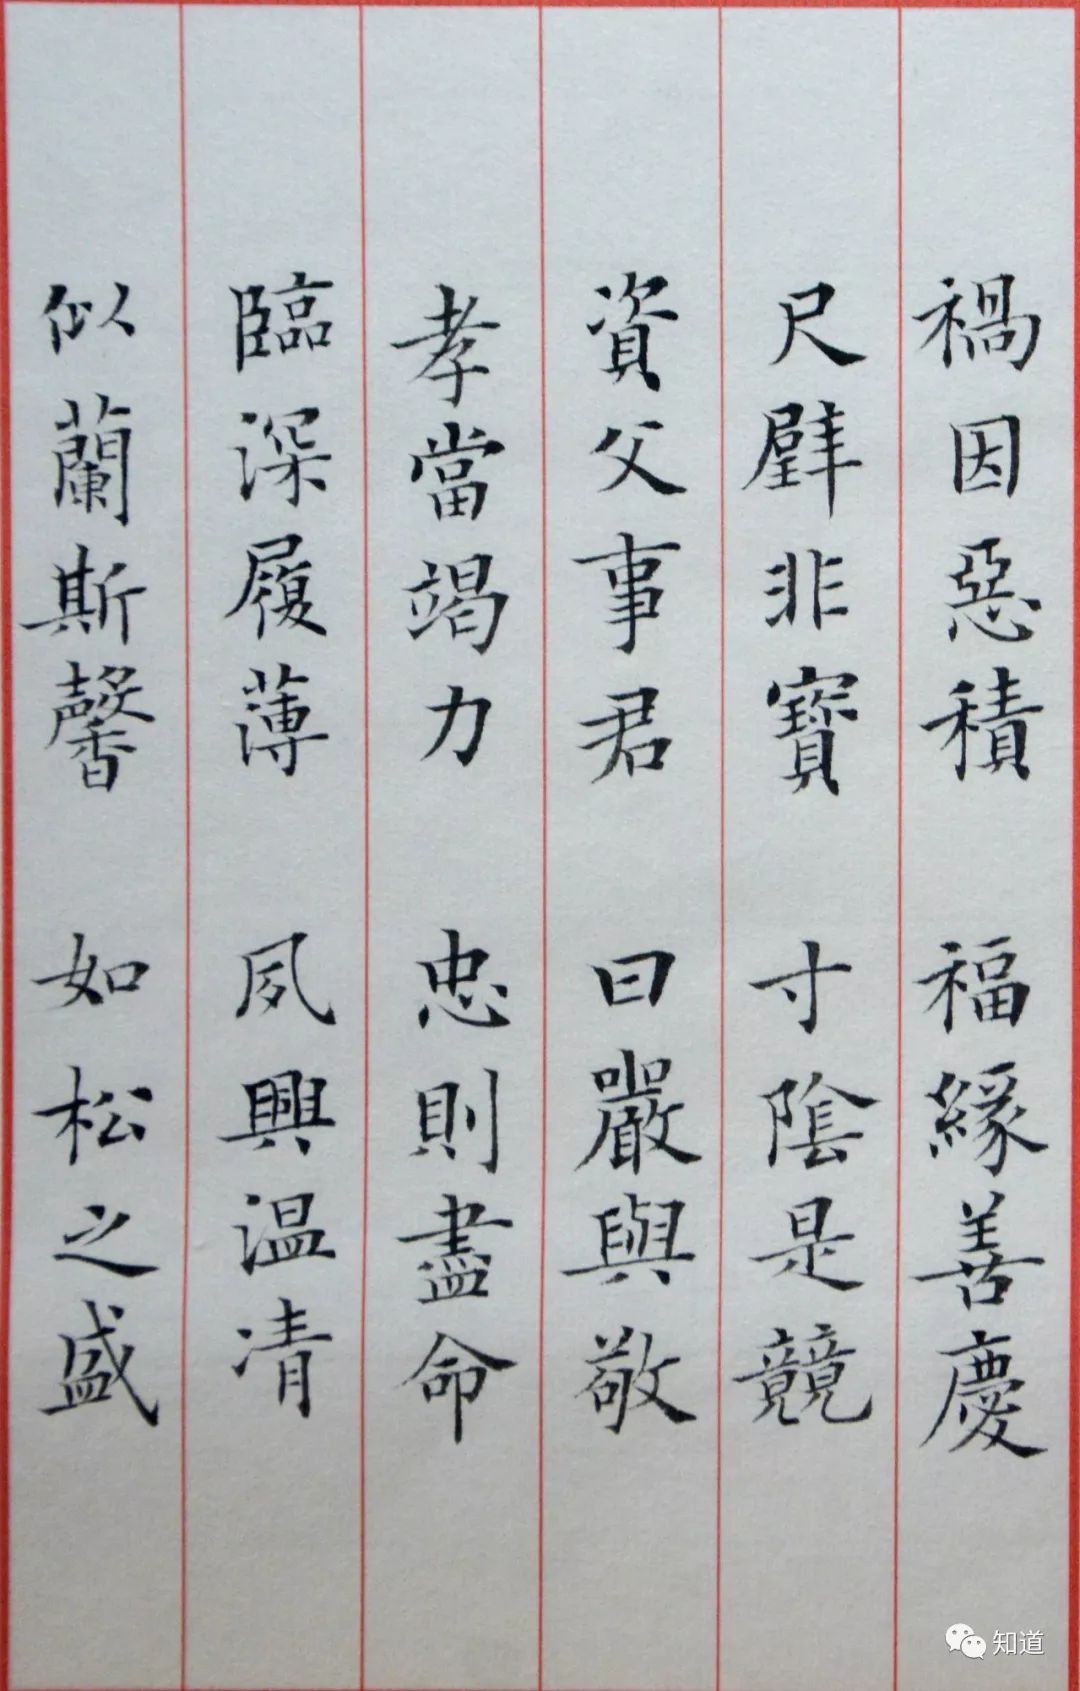 禍因惡積 福緣善慶
尺璧非寶 寸陰是競
資父事君 曰嚴與敬
孝當竭力 忠則盡命
臨深履薄 夙興温凊
似蘭斯馨 如松之盛
知道